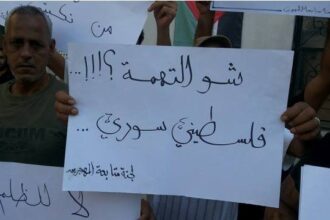 شو التهمة ؟!!!...
فلسطيني سوري ...
لجنة متابعة المهجرين
لا للظلم
من